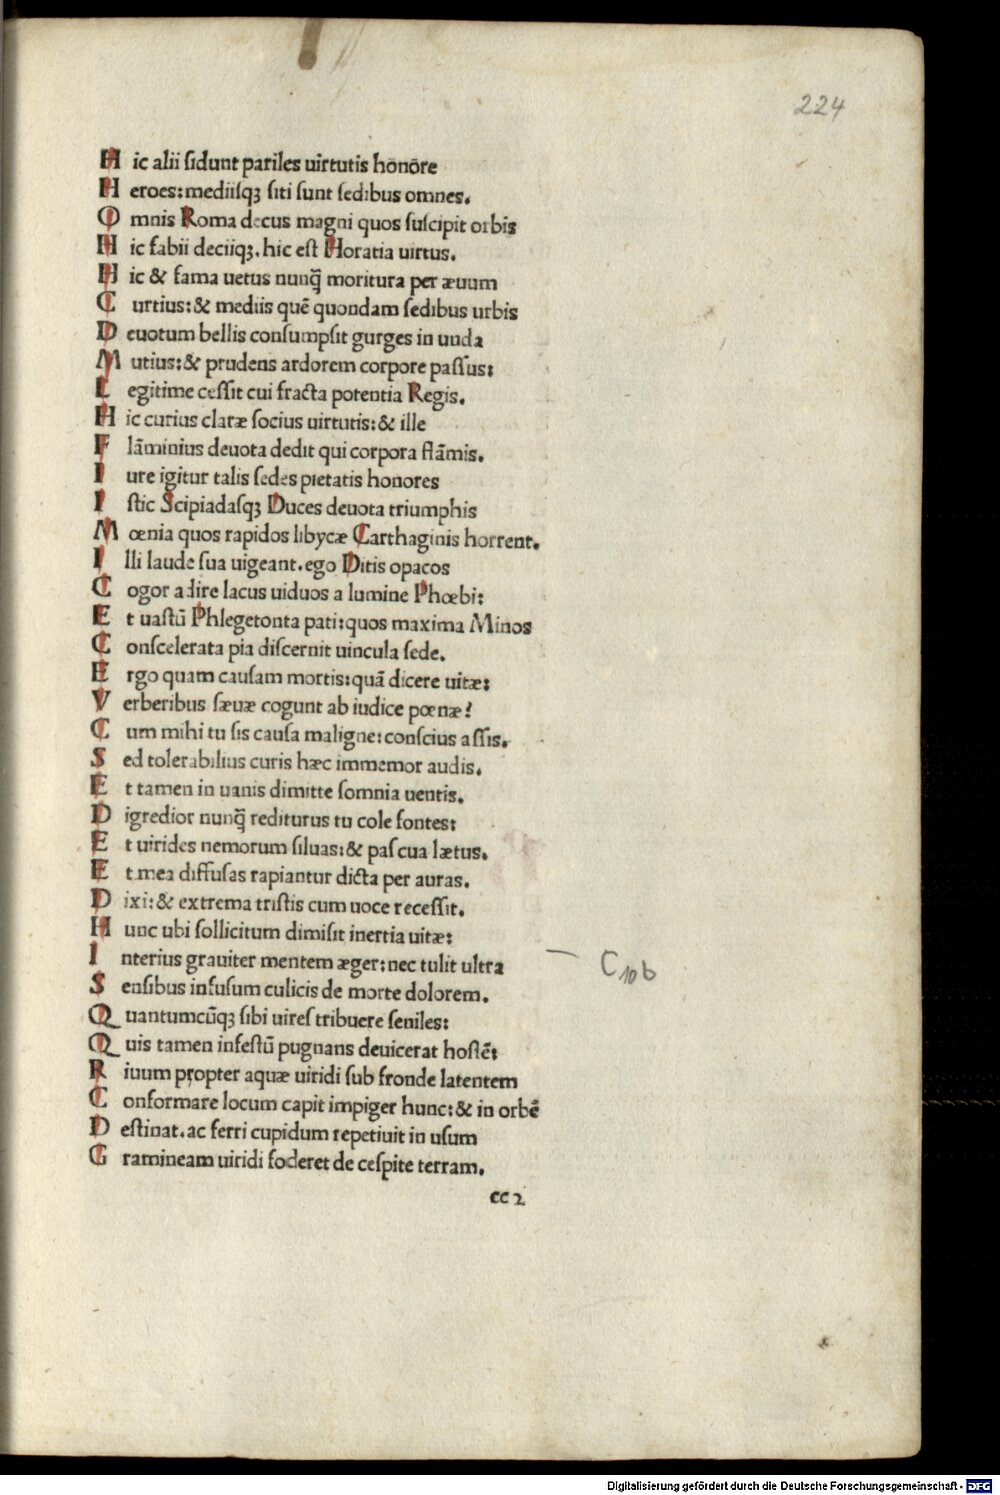 224
H ic alii sidunt pariles uirtutis honōre
H eroes: mediisqꝫ siti sunt sedibus omnes.
O mnis Roma decus magni quos suscipit orbis
H ic fabii deciiqꝫ. hic est Horatia uirtus.
H ic & fama uetus nunq̄ moritura per æuum
C urtius: & mediis quē quondam sedibus urbis
D euotum bellis consumpsit gurges in unda
M utius: & prudens ardorem corpore passus:
L egitime cessit cui fracta potentia Regis.
H ic curius claræ socius uirtutis: & ille
F lāminius deuota dedit qui corpora flāmis.
I ure igitur talis sedes pietatis honores
I stic Scipiadasqꝫ Duces deuota triumphis
M œnia quos rapidos libycæ Carthaginis horrent.
I lli laude sua uigeant. ego Ditis opacos
C ogor adire lacus uiduos a lumine Phœbi:
E t uastū Phlegetonta pati: quos maxima Minos
C onscelerata pia discernit uincula sede.
E rgo quam causam mortis: quā dicere uitæ:
V erberibus sæuæ cogunt ab iudice pœnæ?
C um mihi tu sis causa maligne: conscius assis.
S ed tolerabilius curis hæc immemor audis.
E t tamen in uanis dimitte somnia uentis.
D igredior nunq̄ rediturus tu cole fontes:
E t uirides nemorum siluas: & pascua lætus.
E t mea diffusas rapiantur dicta per auras.
D ixi: & extrema tristis cum uoce recessit.
H unc ubi sollicitum dimisit inertia uitæ:
I nterius grauiter mentem æger: nec tulit ultra
S ensibus infusum culicis de morte dolorem.
Q uantumcūqꝫ sibi uires tribuere seniles:
Q uis tamen infestū pugnans deuicerat hostē:
R iuum propter aquæ uiridi sub fronde latentem
C onformare locum capit impiger hunc: & in orbē
D estinat. ac ferri cupidum repetiuit in usum
G ramineam uiridi foderet de cespite terram.
cc 2
C 10 b
Digitalisierung gefördert durch die Deutsche Forschungsgemeinschaft - DFG